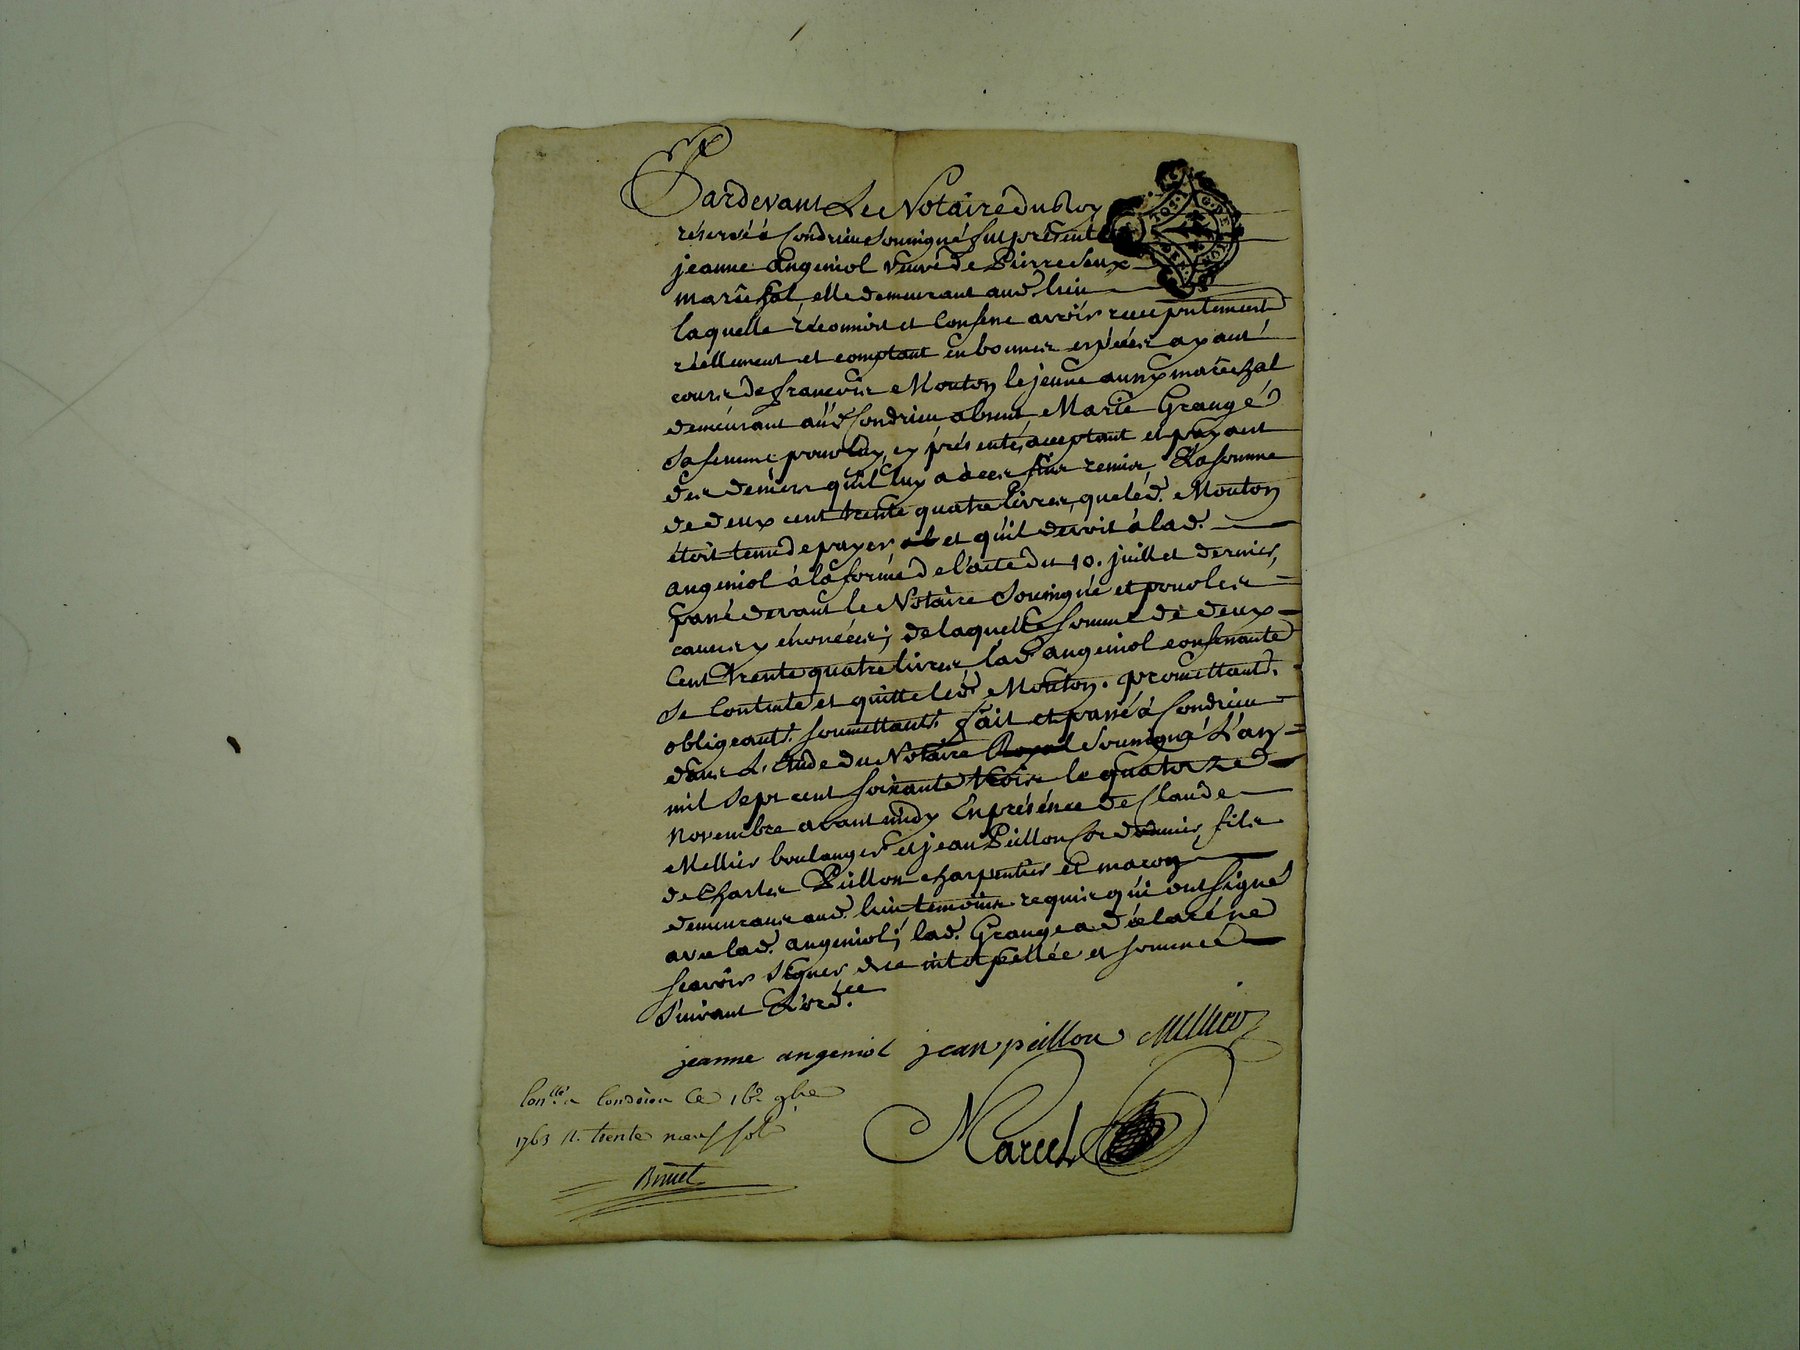 Pardevant Le Notaire du Roy
réservé à Condrieu soussigné fut présente
jeanne angeniol veuve de Pierre Seux
maréchal, elle demeurant aud. lieu
laquelle reconnoit et confesse avoir reçu pntement
réellement et comptant en bonnes espèces ayant
cours de françois Mouton le jeune aussy maréchal
demeurant aud Condrieu absent Marie Grange
sa femme pour luy, cy présente, acceptant et payant
des deniers qu'il luy a à ces fins remis, La somme
de deux cent trente quatre livres, que led. Mouton
étoit tenu de payer et qu'il devoit à lad.
angeniol à la forme de l'acte du 10. juillet dernier,
passé devant le Notaire soussigné et pour les
causes y énoncées; de laquelle somme de deux
cent trente quatre livres, lad. angeniol consensante
se contente et quitte led. Mouton. promettant.
obligeant. soumettant. fait et passé à Condrieu
dans L'Etude du Notaire Royal soussigné L'an
mil sept cent soixante trois le quatorze
novembre avant midy En présence de Claude
Mellier boulanger et jean Peillon Cordonnier, fils
de Charles Peillon charpentier et maçon
demeurans aud. lieu temoins requis qui ont signé
avec lad. angeniol; lad. Grange a déclaré ne
sçavoir signer de ce interpellée et sommée
suivant L'ord.ce
jeanne angeniol jean peillon Mellier
Marcel
Con.llé a Condrieu Le 16e 9bre
1763 R. trente neuf sols
Bruel